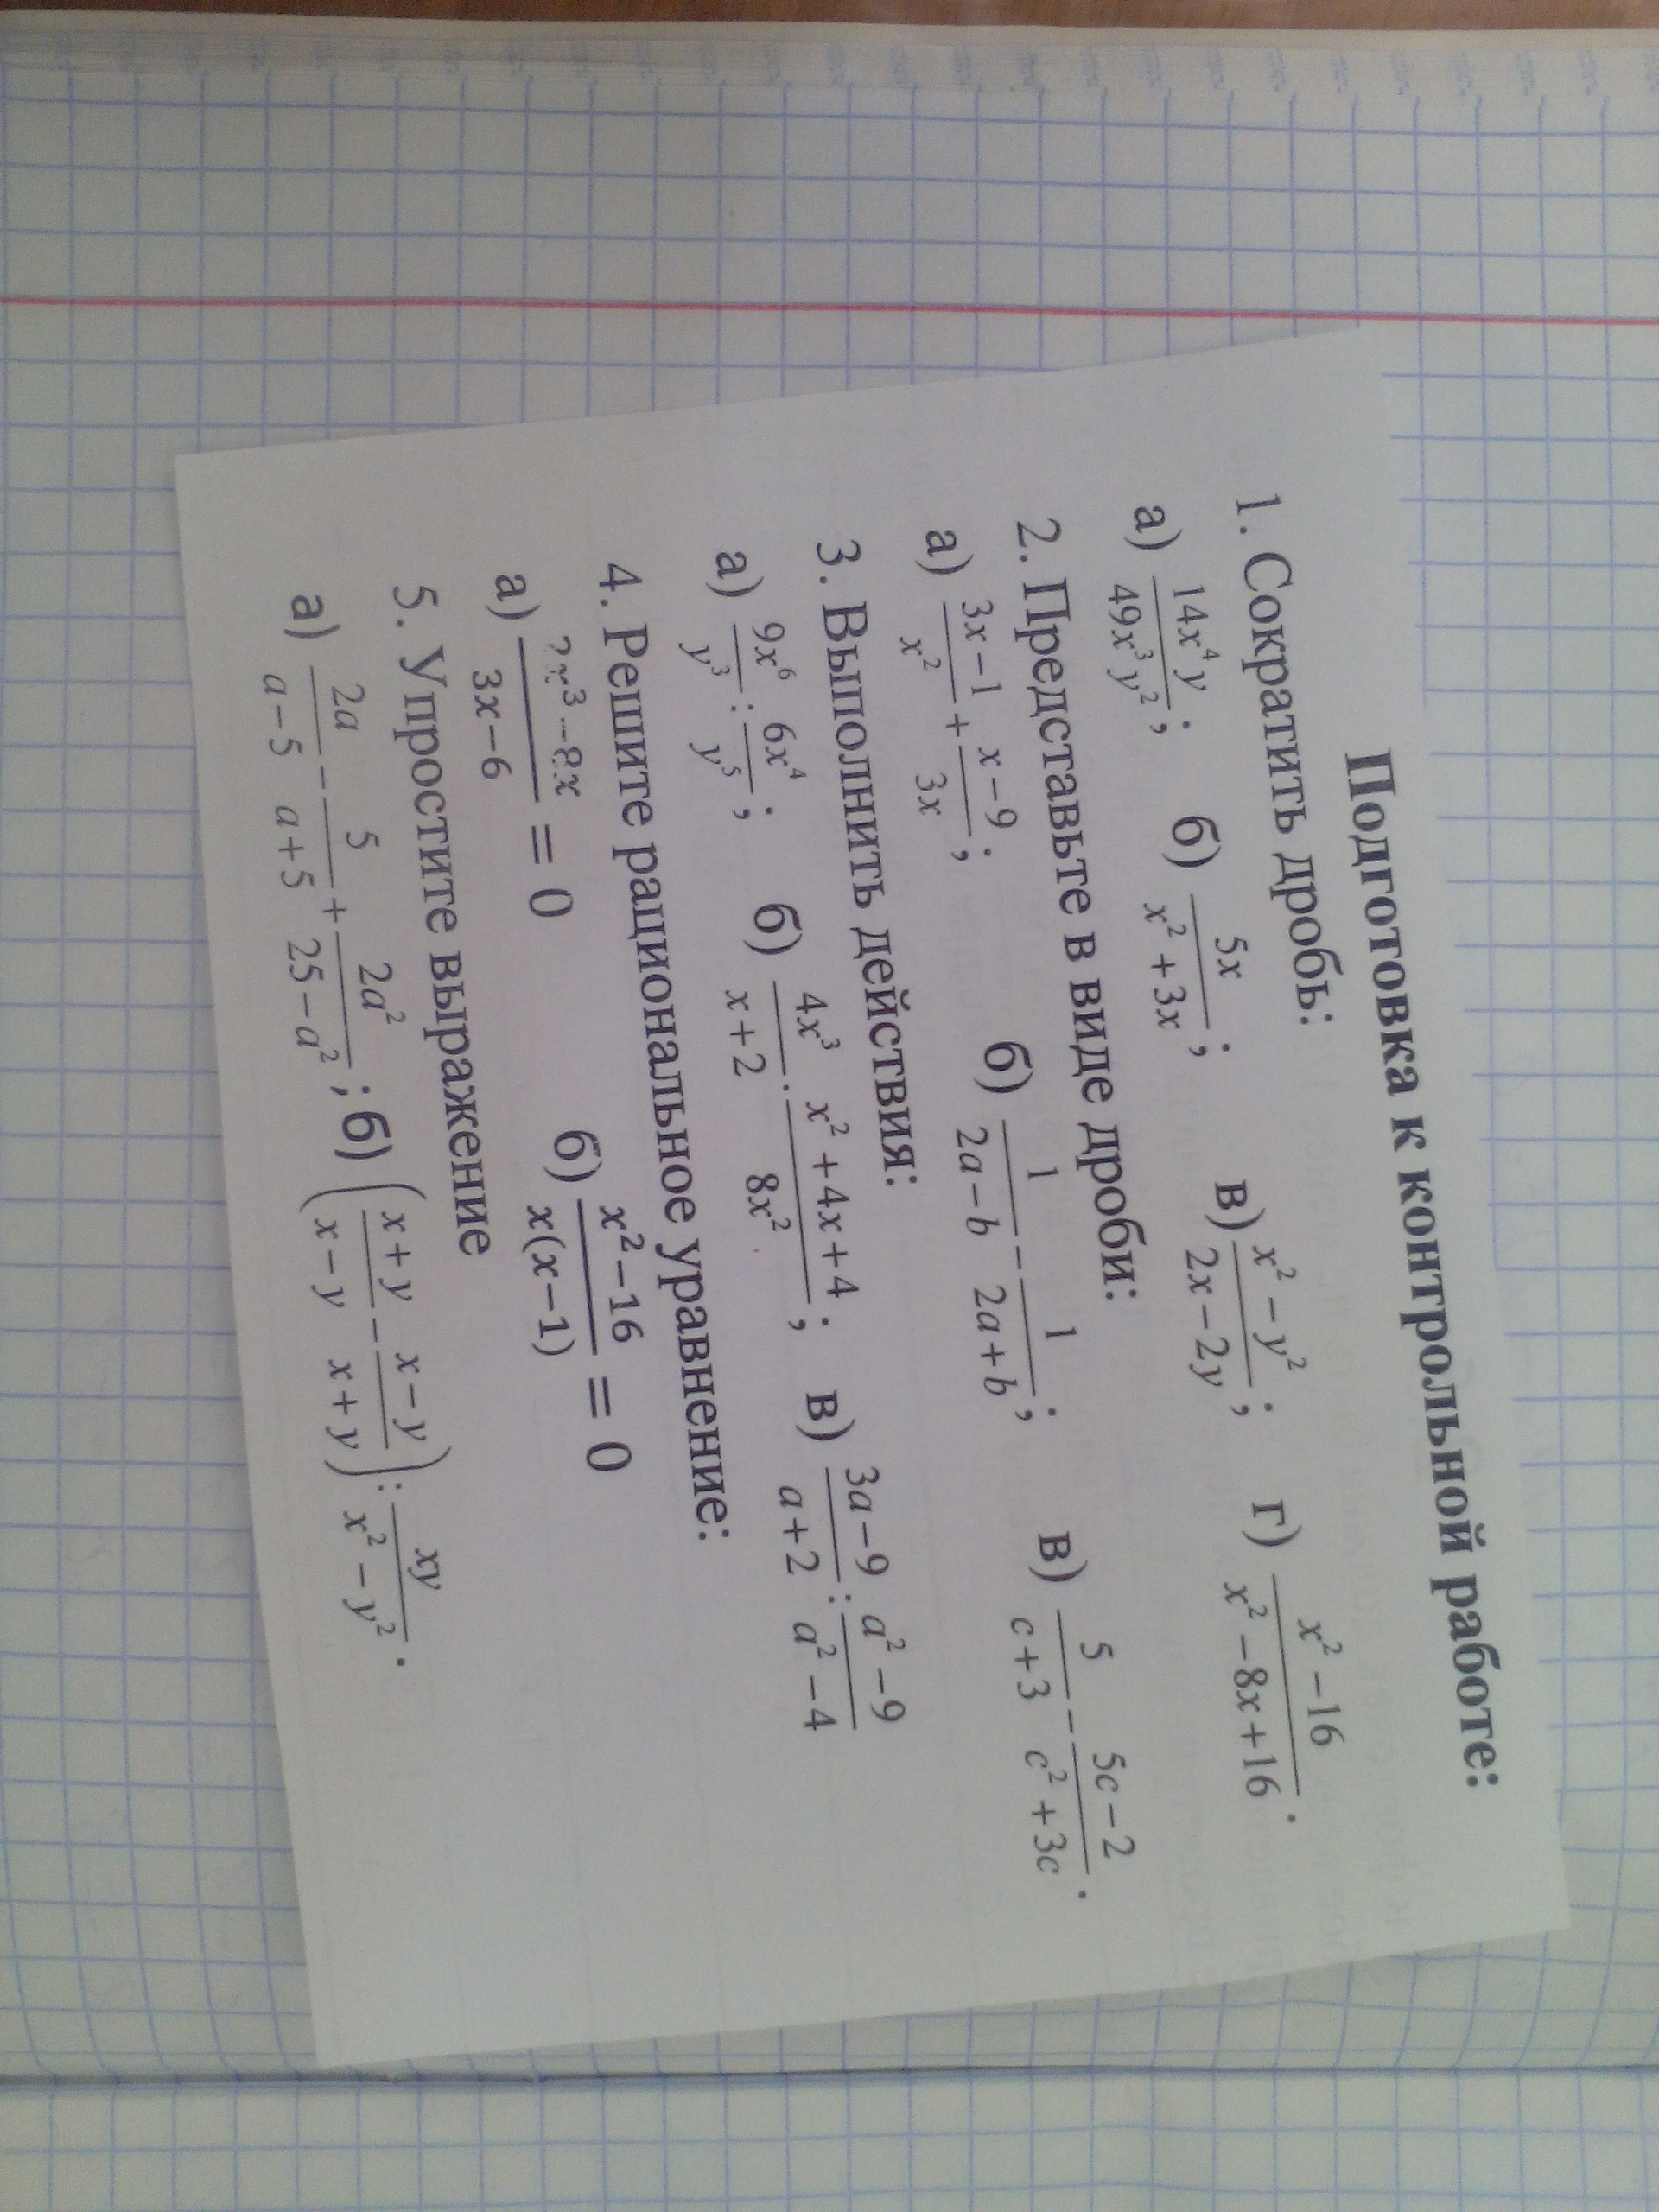 Подготовка к контрольной работе:
1. Сократить дробь:
а) \frac{14x^4y}{49x^3y^2}; б) \frac{5x}{x^2+3x}; в) \frac{x^2-y^2}{2x-2y}; г) \frac{x^2-16}{x^2-8x+16}.
2. Представьте в виде дроби:
а) \frac{3x-1}{x^2}+\frac{x-9}{3x}; б) \frac{1}{2a-b}-\frac{1}{2a+b}; в) \frac{5}{c+3}-\frac{5c-2}{c^2+3c}.
3. Выполнить действия:
а) \frac{9x^6}{y^3}:\frac{6x^4}{y^5}; б) \frac{4x^3}{x+2}·\frac{x^2+4x+4}{8x^2}; в) \frac{3a-9}{a+2}:\frac{a^2-9}{a^2-4}
4. Решите рациональное уравнение:
а) \frac{2x^3-8x}{3x-6}=0 б) \frac{x^2-16}{x(x-1)}=0
5. Упростите выражение
а) \frac{2a}{a-5}-\frac{5}{a+5}+\frac{2a^2}{25-a^2}; б) (\frac{x+y}{x-y}-\frac{x-y}{x+y}):\frac{xy}{x^2-y^2}.